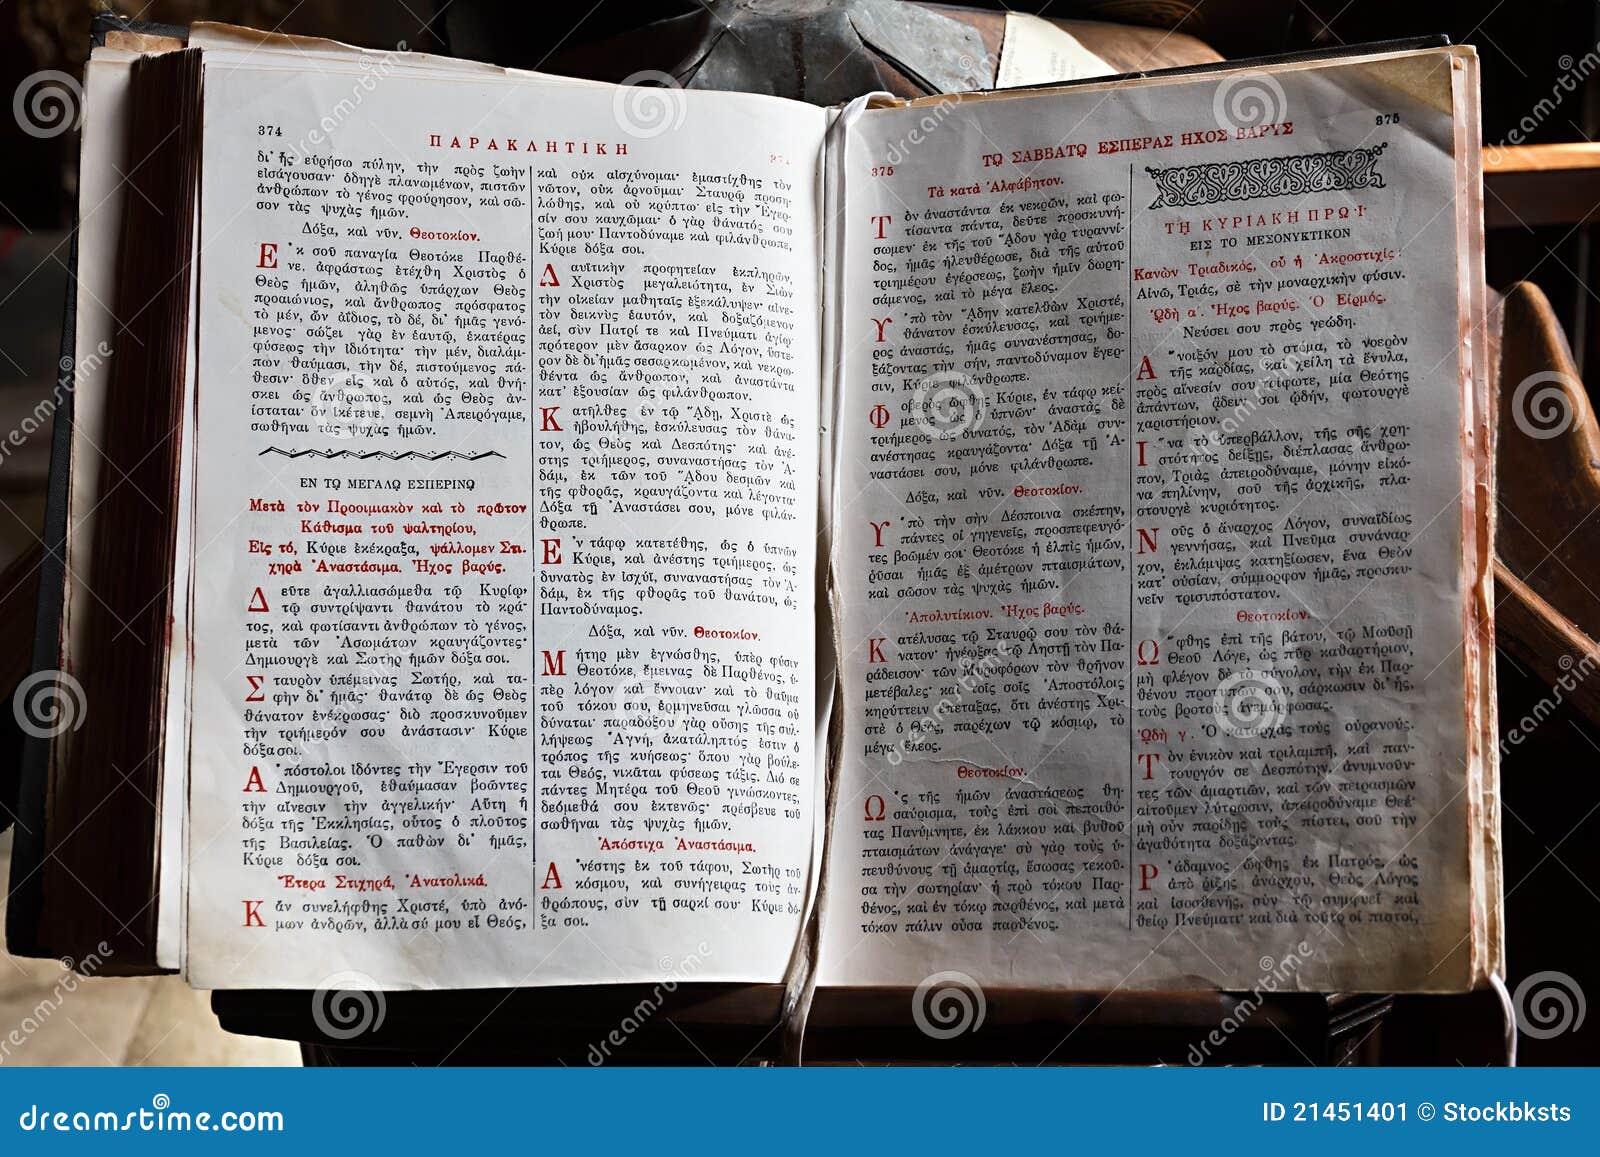 374
ΠΑΡΑΚΛΗΤΙΚΗ
δι' ἧς εὑρήσω πύλην, τὴν πρὸς ζωὴν
εἰσάγουσαν· ὁδηγὲ πλανωμένων, πιστῶν
ἀνθρώπων τὸ γένος φρούρησον, καὶ σῶ-
σον τὰς ψυχὰς ἡμῶν.
Δόξα, καὶ νῦν. Θεοτοκίον.
Ἐκ σοῦ παναγία Θεοτόκε Παρθέ-
νε, ἀφράστως ἐτέχθη Χριστὸς ὁ
Θεὸς ἡμῶν, ἀληθῶς ὑπάρχων Θεὸς
προαιώνιος, καὶ ἄνθρωπος πρόσφατος
τὸ μέν, ὢν ἀΐδιος, τὸ δέ, δι' ἡμᾶς γενό-
μενος· σώζει γὰρ ἐν ἑαυτῷ, ἑκατέρας
φύσεως τὴν ἰδιότητα· τὴν μέν, διαλάμ-
πων θαύμασι, τὴν δέ, πιστούμενος πά-
θεσιν· ὅθεν εἷς καὶ ὁ αὐτός, καὶ θνή-
σκει ὡς ἄνθρωπος, καὶ ὡς Θεὸς ἀν-
ίσταται· ὃν ἱκέτευε, σεμνὴ Ἀπειρόγαμε,
σωθῆναι τὰς ψυχὰς ἡμῶν.
ΕΝ ΤΩ ΜΕΓΑΛΩ ΕΣΠΕΡΙΝΩ
Μετὰ τὸν Προοιμιακὸν καὶ τὸ πρῶτον
Κάθισμα τοῦ ψαλτηρίου,
Εἰς τό, Κύριε ἐκέκραξα, ψάλλομεν Στι-
χηρὰ Ἀναστάσιμα. Ἦχος βαρύς.
Δεῦτε ἀγαλλιασώμεθα τῷ Κυρίῳ,
τῷ συντρίψαντι θανάτου τὸ κρά-
τος, καὶ φωτίσαντι ἀνθρώπων τὸ γένος,
μετὰ τῶν Ἀσωμάτων κραυγάζοντες·
Δημιουργὲ καὶ Σωτὴρ ἡμῶν δόξα σοι.
Σταυρὸν ὑπέμεινας Σωτήρ, καὶ τα-
φὴν δι' ἡμᾶς· θανάτῳ δὲ ὡς Θεὸς
θάνατον ἐνέκρωσας· διὸ προσκυνοῦμεν
τὴν τριήμερόν σου ἀνάστασιν· Κύριε
δόξα σοι.
Ἀπόστολοι ἰδόντες τὴν Ἔγερσιν τοῦ
Δημιουργοῦ, ἐθαύμασαν βοῶντες
τὴν αἴνεσιν τὴν ἀγγελικήν· Αὕτη ἡ
δόξα τῆς Ἐκκλησίας, οὗτος ὁ πλοῦτος
τῆς Βασιλείας. Ὁ παθὼν δι' ἡμᾶς,
Κύριε δόξα σοι.
Ἕτερα Στιχηρά, Ἀνατολικά.
Κἂν συνελήφθης Χριστέ, ὑπὸ ἀνό-
μων ἀνδρῶν, ἀλλὰ σύ μου εἶ Θεός,
καὶ οὐκ αἰσχύνομαι· ἐμαστίχθης τὸν
νῶτον, οὐκ ἀρνοῦμαι· Σταυρῷ προση-
λώθης, καὶ οὐ κρύπτω· εἰς τὴν Ἔγερ-
σίν σου καυχῶμαι· ὁ γὰρ θάνατός σου
ζωή μου· Παντοδύναμε καὶ φιλάνθρωπε,
Κύριε δόξα σοι.
Δαυϊτικὴν προφητείαν ἐκπληρῶν,
Χριστὸς μεγαλειότητα, ἐν Σιὼν
τὴν οἰκείαν μαθηταῖς ἐξεκάλυψεν· αἰνε-
τὸν δεικνὺς ἑαυτόν, καὶ δοξαζόμενον
ἀεί, σὺν Πατρί τε καὶ Πνεύματι ἁγίῳ·
πρότερον μὲν ἄσαρκον ὡς Λόγον, ὕστε-
ρον δὲ δι' ἡμᾶς σεσαρκωμένον, καὶ νεκρω-
θέντα ὡς ἄνθρωπον, καὶ ἀναστάντα
κατ' ἐξουσίαν ὡς φιλάνθρωπον.
Κατῆλθες ἐν τῷ ᾍδῃ, Χριστὲ ὡς
ἠβουλήθης, ἐσκύλευσας τὸν θάνα-
τον, ὡς Θεὸς καὶ Δεσπότης· καὶ ἀνέ-
στης τριήμερος, συναναστήσας τὸν Ἀ-
δάμ, ἐκ τῶν τοῦ ᾍδου δεσμῶν καὶ
τῆς φθορᾶς, κραυγάζοντα καὶ λέγοντα·
Δόξα τῇ Ἀναστάσει σου, μόνε φιλάν-
θρωπε.
Ἐν τάφῳ κατετέθης, ὡς ὁ ὑπνῶν
Κύριε, καὶ ἀνέστης τριήμερος, ὡς
δυνατὸς ἐν ἰσχύϊ, συναναστήσας τὸν Ἀ-
δάμ, ἐκ τῆς φθορᾶς τοῦ θανάτου, ὡς
Παντοδύναμος.
Δόξα, καὶ νῦν. Θεοτοκίον.
Μήτηρ μὲν ἐγνώσθης, ὑπὲρ φύσιν
Θεοτόκε, ἔμεινας δὲ Παρθένος, ὑ-
πὲρ λόγον καὶ ἔννοιαν· καὶ τὸ θαῦμα
τοῦ τόκου σου, ἑρμηνεῦσαι γλῶσσα οὐ
δύναται· παραδόξου γὰρ οὔσης τῆς συλ-
λήψεως Ἁγνή, ἀκατάληπτός ἐστιν ὁ
τρόπος τῆς κυήσεως· ὅπου γὰρ βούλε-
ται Θεός, νικᾶται φύσεως τάξις. Διό σε
πάντες Μητέρα τοῦ Θεοῦ γινώσκοντες,
δεόμεθά σου ἐκτενῶς· πρέσβευε τοῦ
σωθῆναι τὰς ψυχὰς ἡμῶν.
Ἀπόστιχα Ἀναστάσιμα.
Ἀνέστης ἐκ τοῦ τάφου, Σωτὴρ τοῦ
κόσμου, καὶ συνήγειρας τοὺς ἀν-
θρώπους, σὺν τῇ σαρκί σου· Κύριε δό-
ξα σοι.
375
ΤΩ ΣΑΒΒΑΤΩ ΕΣΠΕΡΑΣ ΗΧΟΣ ΒΑΡΥΣ
375
Τὰ κατὰ Ἀλφάβητον.
Τὸν ἀναστάντα ἐκ νεκρῶν, καὶ φω-
τίσαντα πάντα, δεῦτε προσκυνή-
σωμεν· ἐκ τῆς τοῦ ᾍδου γὰρ τυραννί-
δος, ἡμᾶς ἠλευθέρωσε, διὰ τῆς αὐτοῦ
τριημέρου ἐγέρσεως, ζωὴν ἡμῖν δωρη-
σάμενος, καὶ τὸ μέγα ἔλεος.
Ὑπὸ τὸν ᾍδην κατελθὼν Χριστέ,
θάνατον ἐσκύλευσας, καὶ τριήμε-
ρος ἀναστάς, ἡμᾶς συνανέστησας, δο-
ξάζοντας τὴν σήν, παντοδύναμον ἔγερ-
σιν, Κύριε φιλάνθρωπε.
Φοβερὸς ὤφθης Κύριε, ἐν τάφῳ κεί-
μενος ὡς ὁ ὑπνῶν· ἀναστὰς δὲ
τριήμερος ὡς δυνατός, τὸν Ἀδὰμ συν-
ανέστησας κραυγάζοντα· Δόξα τῇ Ἀ-
ναστάσει σου, μόνε φιλάνθρωπε.
Δόξα, καὶ νῦν. Θεοτοκίον.
Ὑπὸ τὴν σὴν Δέσποινα σκέπην,
πάντες οἱ γηγενεῖς, προσπεφευγό-
τες βοῶμέν σοι· Θεοτόκε ἡ ἐλπὶς ἡμῶν,
ῥῦσαι ἡμᾶς ἐξ ἀμέτρων πταισμάτων,
καὶ σῶσον τὰς ψυχὰς ἡμῶν.
Ἀπολυτίκιον. Ἦχος βαρύς.
Κατέλυσας τῷ Σταυρῷ σου τὸν θά-
νατον· ἠνέῳξας τῷ Λῃστῇ τὸν Πα-
ράδεισον· τῶν Μυροφόρων τὸν θρῆνον
μετέβαλες· καὶ τοῖς σοῖς Ἀποστόλοις
κηρύττειν ἐπέταξας, ὅτι ἀνέστης Χρι-
στὲ ὁ Θεός, παρέχων τῷ κόσμῳ, τὸ
μέγα ἔλεος.
Θεοτοκίον.
Ὡς τῆς ἡμῶν ἀναστάσεως θη-
σαύρισμα, τοὺς ἐπὶ σοὶ πεποιθό-
τας Πανύμνητε, ἐκ λάκκου καὶ βυθοῦ
πταισμάτων ἀνάγαγε· σὺ γὰρ τοὺς ὑ-
πευθύνους τῇ ἁμαρτίᾳ, ἔσωσας τεκοῦ-
σα τὴν σωτηρίαν· ἡ πρὸ τόκου Παρ-
θένος, καὶ ἐν τόκῳ παρθένος, καὶ μετὰ
τόκον πάλιν οὖσα παρθένος.
ΤΗ ΚΥΡΙΑΚΗ ΠΡΩΙ
ΕΙΣ ΤΟ ΜΕΣΟΝΥΚΤΙΚΟΝ
Κανὼν Τριαδικός, οὗ ἡ Ἀκροστιχίς:
Αἰνῶ, Τριάς, σὲ τὴν μοναρχικὴν φύσιν.
ᾨδὴ α΄. Ἦχος βαρύς. Ὁ Εἱρμός.
Νεύσει σου πρὸς γεώδη.
Ἄνοιξόν μου τὸ στόμα, τὸ νοερὸν
τῆς καρδίας, καὶ χείλη τὰ ἔνυλα,
πρὸς αἴνεσίν σου τρίφωτε, μία Θεότης
ἁπάντων, ᾄδειν σοι ᾠδήν, φωτουργὲ
χαριστήριον.
Ἵνα τὸ ὑπερβάλλον, τῆς σῆς χρη-
στότητος δείξῃς, διέπλασας ἄνθρω-
πον, Τριὰς ἀπειροδύναμε, μόνην εἰκό-
να πηλίνην, σοῦ τῆς ἀρχικῆς, πλα-
στουργὲ κυριότητος.
Νοῦς ὁ ἄναρχος Λόγον, συναϊδίως
γεννήσας, καὶ Πνεῦμα συνάναρ-
χον, ἐκλάμψας κατηξίωσεν, ἕνα Θεὸν
κατ' οὐσίαν, σύμμορφον ἡμᾶς, προσκυ-
νεῖν τρισυπόστατον.
Θεοτοκίον.
Ὤφθης ἐπὶ τῆς βάτου, τῷ Μωϋσῇ
Θεοῦ Λόγε, ὡς πῦρ καθαρτήριον,
μὴ φλέγον δὲ τὸ σύνολον, τὴν ἐκ Παρ-
θένου προτυπῶν σου, σάρκωσιν δι' ἧς,
τοὺς βροτοὺς ἀνεμόρφωσας.
ᾨδὴ γ΄. Ὁ κατ' ἀρχὰς τοὺς οὐρανούς.
Τὸν ἑνικὸν καὶ τριλαμπῆ, καὶ παν-
τουργόν σε Δεσπότην, ἀνυμνοῦν-
τες τῶν ἁμαρτιῶν, καὶ τῶν πειρασμῶν
αἰτοῦμεν λύτρωσιν, ἀπειροδύναμε Θεέ·
μὴ οὖν παρίδῃς τοὺς πίστει, σοῦ τὴν
ἀγαθότητα δοξάζοντας.
Ῥάδαμνος ὤφθης ἐκ Πατρός, ὡς
ἀπὸ ῥίζης ἀνάρχου, Θεὸς Λόγος
καὶ ἰσοσθενής, σὺν τῷ συμφυεῖ καὶ
θείῳ Πνεύματι· καὶ διὰ τοῦτο οἱ πιστοί,
dreamstime
dreamstime.com
ID 21451401 © Stockbksts